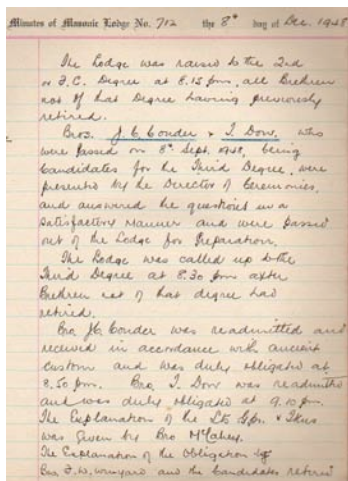 Minutes of Masonic Lodge No. 712 the 8th day of Dec. 1948
The Lodge was raised to the 2nd
or F.C. Degree at 8.15 pm, all Brethren
not of that Degree having previously
retired.
Bros. J. C. Conder & T. Dow, who
were passed on 8th Sept. 1948, being
Candidates for the Third Degree, were
presented by the Director of Ceremonies,
and answered the questions in a
satisfactory manner and were passed
out of the Lodge for Preparation.
The Lodge was called up to the
Third Degree at 8.30 pm after
Brethren not of that degree had
retired.
Bro J.C. Conder was readmitted and
received in accordance with ancient
custom and was duly obligated at
8.50 pm. Bro. T. Dow was readmitted
and was duly obligated at 9.10 pm.
The Explanation of the &
was given by Bro McCabey.
The Explanation of the Obligation by
Bro F.W. and the Candidates retired